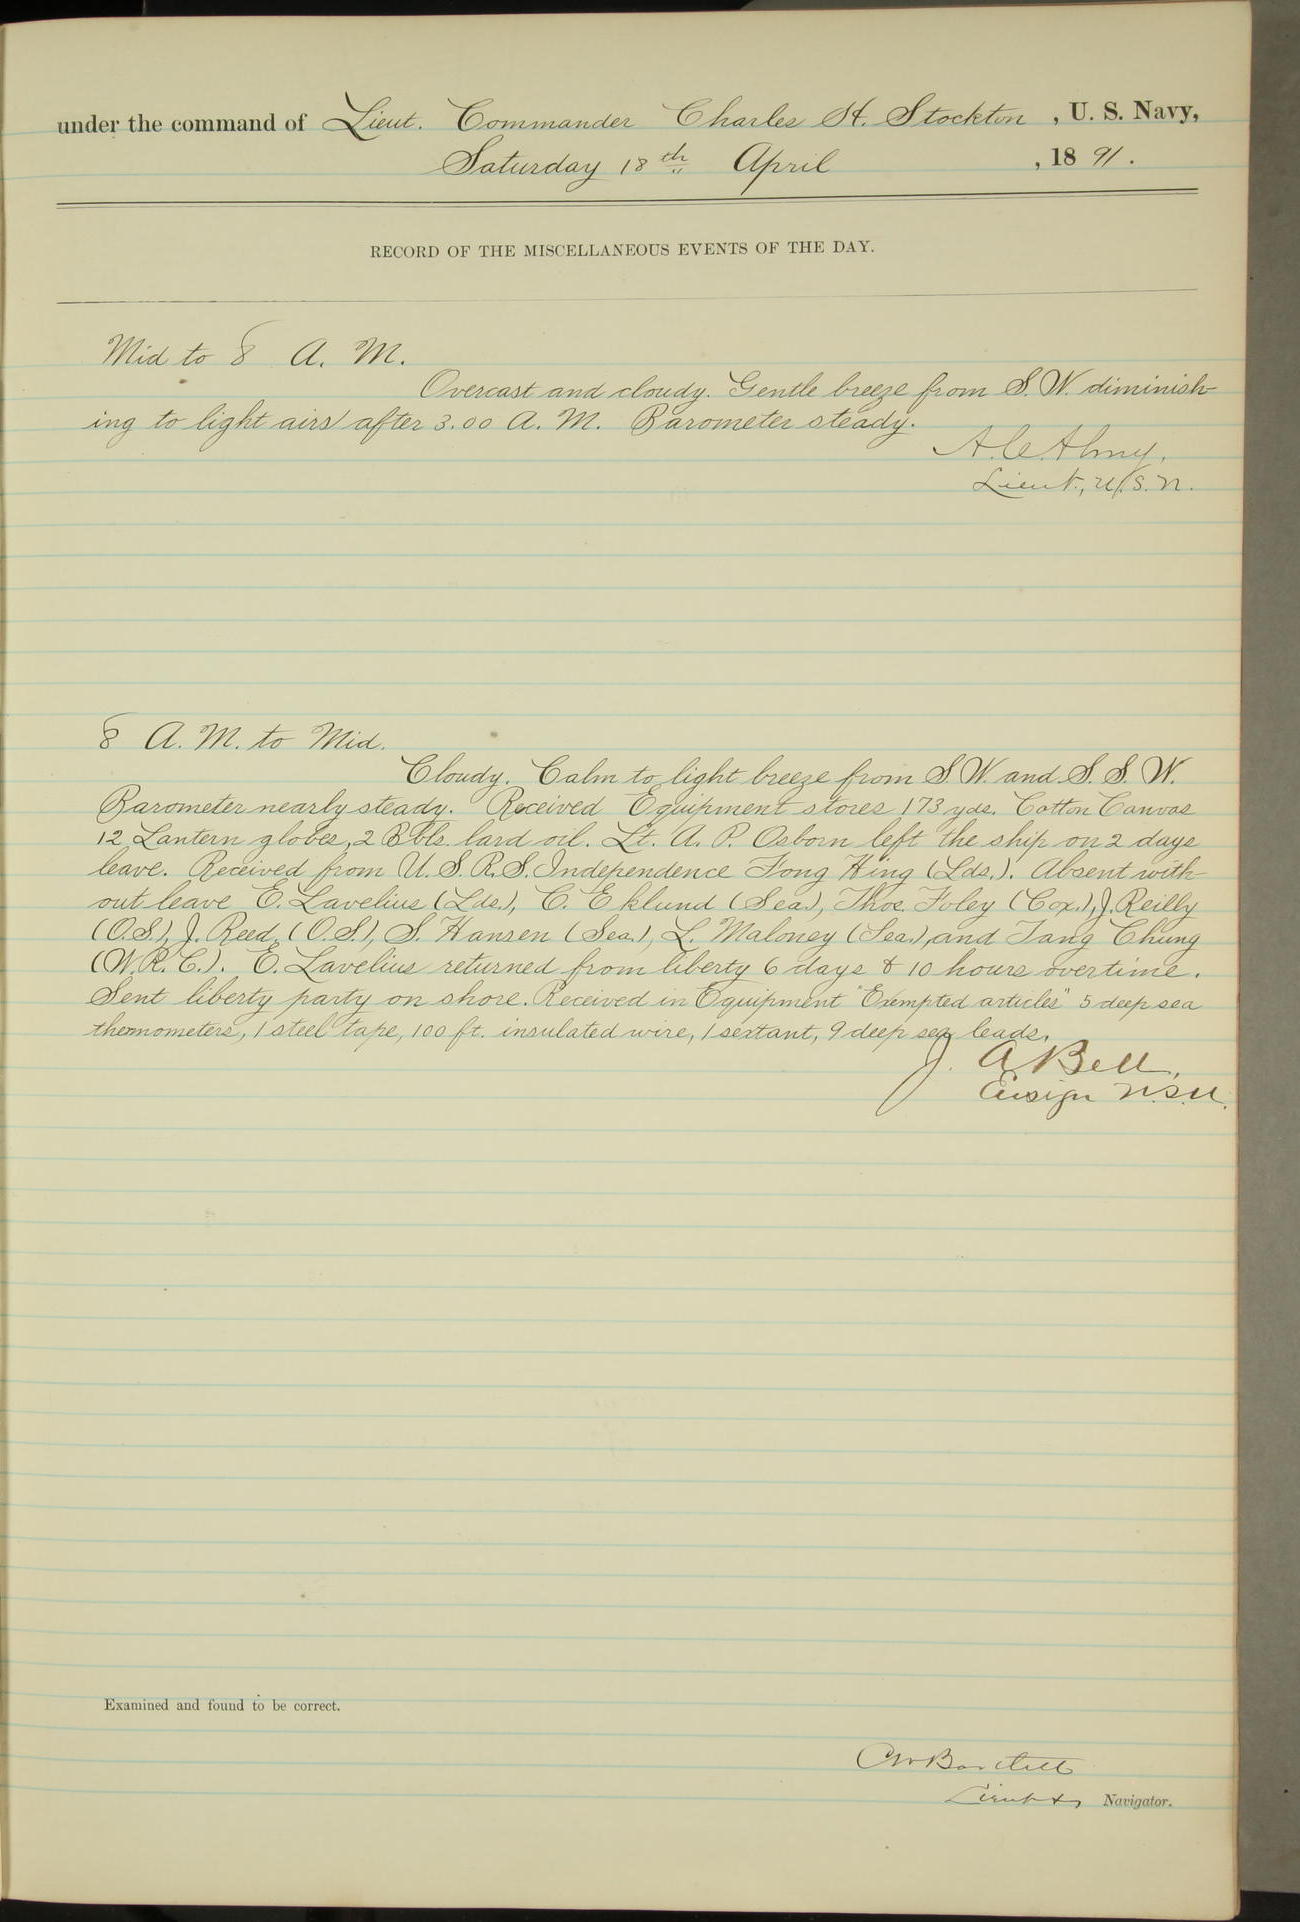 under the command of Lieut. Commander Charles H. Stockton , U. S. Navy,
Saturday 18th April , 1891.
RECORD OF THE MISCELLANEOUS EVENTS OF THE DAY.
Mid to 8 A. M.
Overcast and cloudy. Gentle breeze from S. W. diminish-
ing to light airs after 3.00 A. M. Barometer steady.
A. C. Almy,
Lieut., U.S.N.
8 A. M. to Mid.
Cloudy. Calm to light breeze from S. W. and S. S. W.
Barometer nearly steady. Received Equipment stores 173 yds. Cotton Canvas
12 Lantern globes, 2 Bbls. lard oil. Lt. A. P. Osborn left the ship on 2 days
leave. Received from U. S. R. S. Independence Fong Hing (Lds.). Absent with-
out leave E. Lavelius (Lds.), C. Eklund (Sea.), Thos. Foley (Cox.), J. Reilly
(O.S.), J. Reed, (O.S.), S. Hansen (Sea.), L. Maloney (Sea.), and Tang Chung
(W.R.C.). E. Lavelius returned from liberty 6 days & 10 hours overtime.
Sent liberty party on shore. Received in Equipment "Exempted articles" 5 deep sea
thermometers, 1 steel tape, 100 ft. insulated wire, 1 sextant, 9 deep sea leads.
J. A Bell,
Ensign U.S.N.
Examined and found to be correct.
CW Bartlett
Lieut & Navigator.